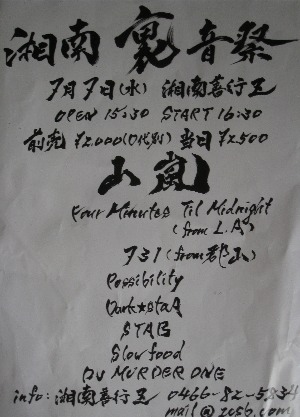 湘南 裏 音祭
7月7日(水) 湘南善行Z
OPEN 15:30 START 16:30
前売 ¥2,000(D代別) 当日 ¥2,500
山嵐
Four Minutes Til Midnight
(from L.A)
731(from郡山)
Possibility
Dark★staR
STAB
Slow food
DJ MURDER ONE
info: 湘南善行Z 0466-82-5834